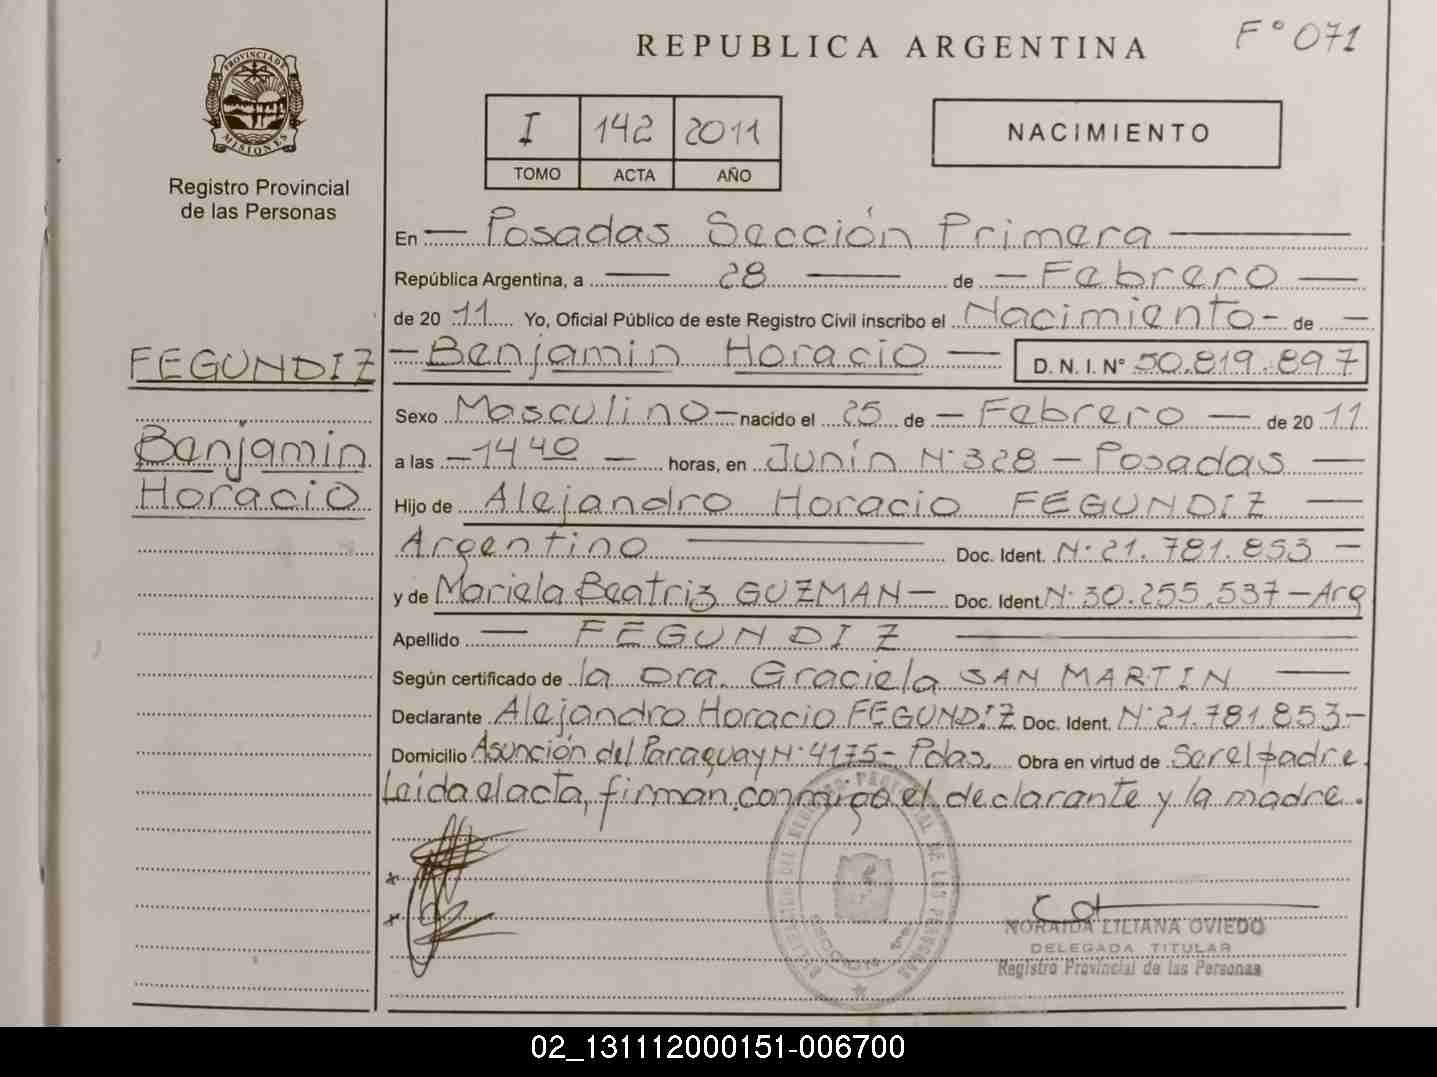 F° 071
REPUBLICA ARGENTINA
PROVINCIA DE MISIONES
Registro Provincial
de las Personas
I 142 2011
TOMO ACTA AÑO
NACIMIENTO
En — Posadas Sección Primera —
República Argentina, a — 28 — de — Febrero —
de 20 11 Yo, Oficial Público de este Registro Civil inscribo el Nacimiento - de —
FEGUNDIZ
— Benjamin Horacio — D. N. I. N° 50.819.897
Sexo Masculino — nacido el 25 de — Febrero — de 20 11
Benjamin
Horacio
a las — 14 40 — horas, en Junín N° 328 — Posadas —
Hijo de Alejandro Horacio FEGUNDIZ —
Argentino — Doc. Ident. N° 21.781.853 —
y de Mariela Beatriz GUZMAN — Doc. Ident. N° 30.255.537 — Arg
Apellido — FEGUNDIZ —
Según certificado de la Dra. Graciela SAN MARTIN —
Declarante Alejandro Horacio FEGUNDIZ Doc. Ident. N° 21.781.853 —
Domicilio Asunción del Paraguay N° 4175 - Pdas. Obra en virtud de Ser el padre.
Leída el acta, firman conmigo el declarante y la madre.
NORAIDA LILIANA OVIEDO
DELEGADA TITULAR
Registro Provincial de las Personas
02_131112000151-006700